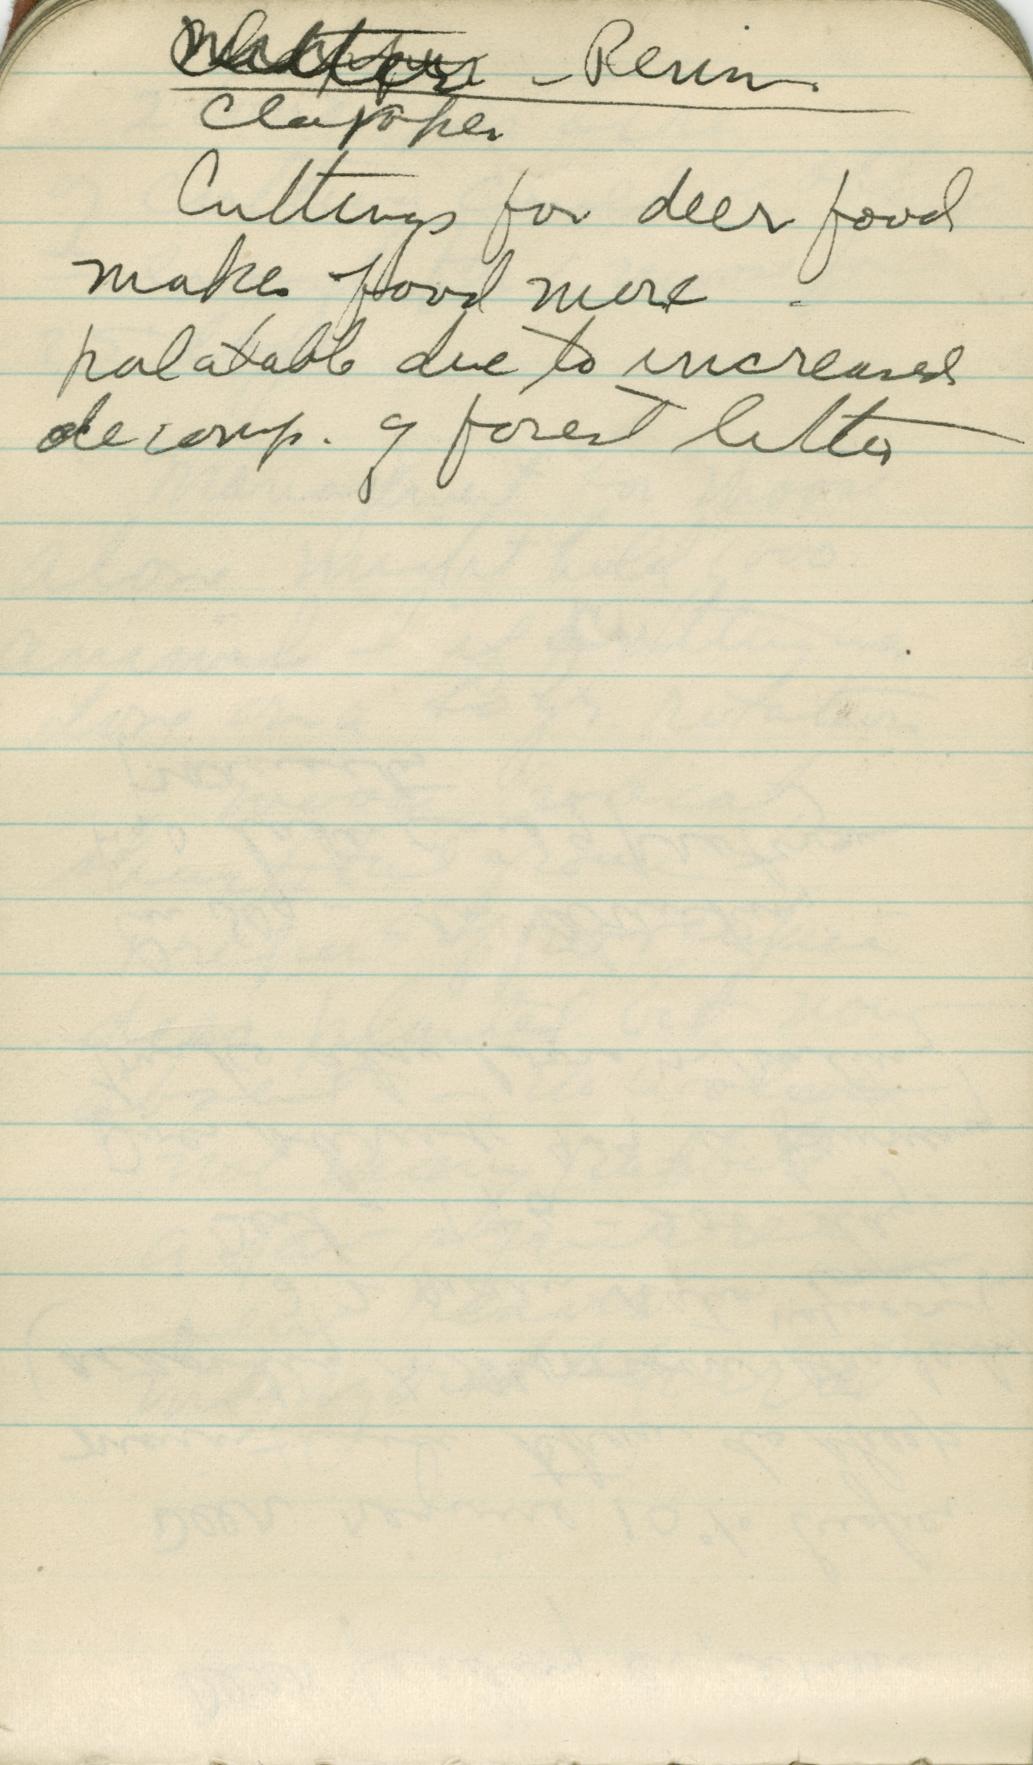 - Penn.
Clapper
Cuttings for deer food
makes food more
palatable due to increased
decomp. of forest litter